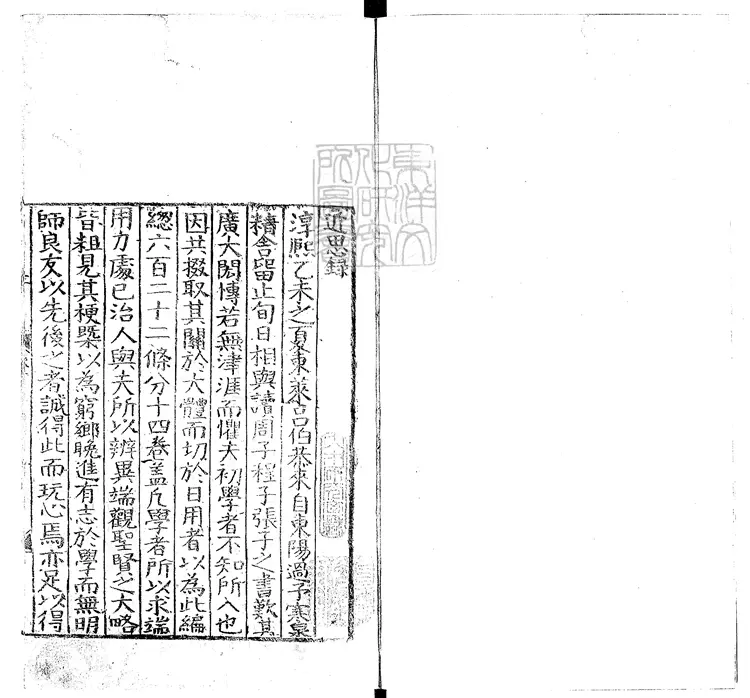 近思録
淳熈乙未之夏東萊吕伯恭來自東陽過予寒泉
精舍留止旬日相與讀周子程子張子之書歎其
廣大閎博若無津涯而懼夫初學者不知所入也
因共掇取其關於大體而切於日用者以為此編
緫六百二十二條分十四卷盖凡學者所以求端
用力處已治人與夫所以辨異端觀聖賢之大略
皆粗見其梗槩以為窮鄉晩進有志於學而無明
師良友以先後之者誠得此而玩心焉亦足以得
東洋文
化研究
所圖書